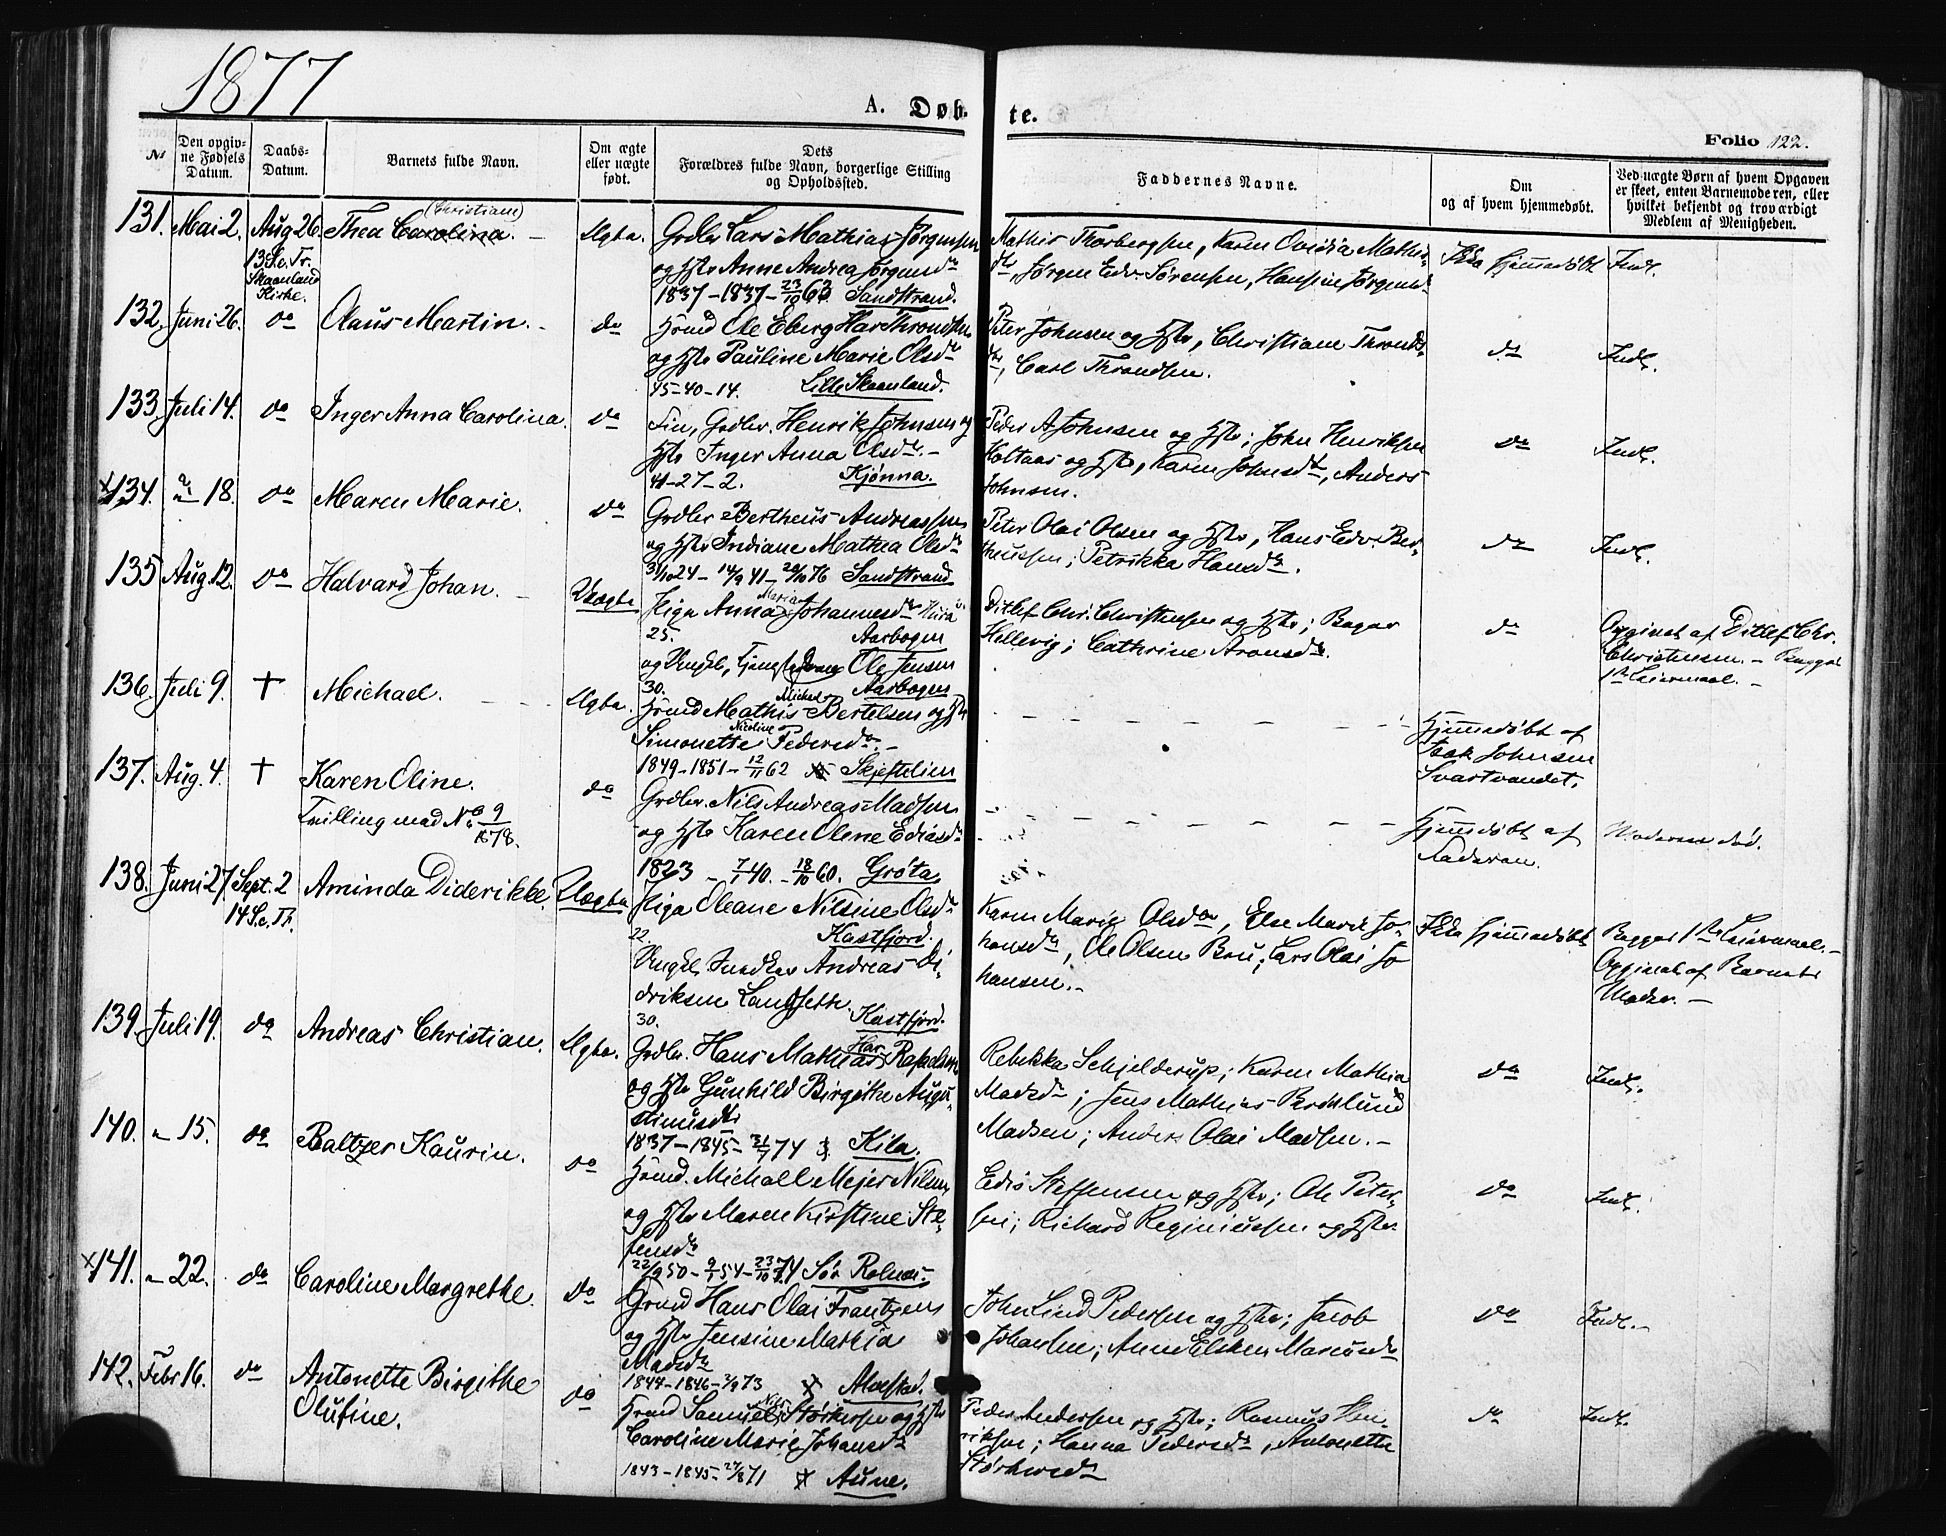 1877
A. Døb-
te.
Folio 122.
№
Den opgiv-
ne Fødsels
Datum.
Daabs-
Datum.
Barnets fulde Navn.
Om ægte
eller uægte
født.
Dets
Forældres fulde Navn, borgerlige Stilling
og Opholdssted.
Faddernes Navne.
Om
og af hvem hjemmedøbt.
Ved uægte Børn af hvem Opgaven
er skeet, enten Barnemoderen, eller
hvilket bekjendt og troværdigt
Medlem af Menigheden.
131. Mai 2. Aug 26. Thea Carolina. (Christiane)
13 S. e. Tr.
Skaanland
Kirke.
Ægte.
Grdbr Lars Mathias Jørgensen
og Hstr Anne Andrea Jørgensdr
1837 – 1837 – 23/10 63 Sandstrand.
Mathis Thorbergsen, Karen Ovidia Mathis-
dtr, Jørgen Edv. Sørensen, Hansine Jørgensdr
Ikke hjemmedøbt
Indl.
132. Juni 26. do Olaus Martin. do
Hsmd Ole Eberg Har Throndsen
og Hstr Pauline Marie Olsdr
45–40–14. Lille Skaanland.
Peter Johnsen og Hstr, Christiane Thronds-
dtr, Carl Throndsen.
do Indl.
133. Juli 14. do Inger Anna Carolina. do
Fin, Grdbr. Henrik Johnsen og
Hstr Inger Anna Olsdr. –
41–27–2. Kjønna.
Peder A Johnsen og Hstr; John Henriksen
Holtaas og Hstr, Karen Johnsdtr, Anders
Johnsen.
do Indl.
x134. " 18. do Maren Marie. do
Grdbr Bertheus Andreassen
og Hstr Indiane Mathea Olsdr
3/10 24 – 14/9 41 – 20/10 76 Sandstrand
Peter Olai Olsen og Hstr, Hans Edv. Ber-
theussen; Petrikka Hansdr.
do Indl.
135 Aug. 12. do Halvard Johan. Uægte
Pige Anna Maria Johannesdr
25. Aarbogen
og Ungkl, Ole Jensen
30. Aarbogen
Ditlef Chr. Christensen og Hstr; Roger
Hellevig; Cathrine Aronsdr.
do
Opgivet af Ditlef Chr.
Christensen. – Begges
1ste Leiermaal. –
136. Juli 9. † Michael. Ægte.
Hsmd Mathis Michal Bertelsen og Hstr
Simonette Nicoline Pedersdr. –
1849–1851– 12/11 62 Skjeftelien
Hjemmedøbt af
Isak Johnsen
Svartvandet.
137. Aug. 4. † Karen Oline. do
Tvilling med No 9/1878.
Grdbr. Nils Andreas Madsen
og Hstr Karen Olene Ediasdr
1823 – 7/1 40. – 18/10 60. Grøta
Hjemmedøbt af
Faderen.
Moderen død.
138. Juni 27 Sept. 2 Aminda Diderikke. Uægte
14 S. e. Tr.
Pige Oleane Nilsine Olsdr
22. Kastfjord.
Ungkl, Snedker Andreas Di-
driksen Langseth.
30. Kastfjord.
Karen Marie Olsdr, Else Marie Jo-
hansdr, Ole Olsen Bru; Lars Olai Jo
hansen. –
Ikke hjemmedøbt
Begges 1ste Leiermaal. –
Opgivet af Barnets
Moder. –
139. Juli 19. do Andreas Christian. Ægte.
Grdbr. Hans Mathias Har Rafaelsen
og Hstr Gunhild Birgithe Augu-
stinusdtr
1837 – 1845 – 31/7 74 Kila.
Rebekka Schjelderup; Karen Mathia
Madsdr; Jens Mathias Berthlund
Madsen; Anders Olai Madsen. –
do Indl.
140. " 15. do Baltzer Kaurin. do
Hsmd. Michall Mejer Nilsen
og Hstr Maren Kirstine Ste-
fensdr
22/9 50 – 9/1 54 – 23/10 74 Sør Rolnæs.
Edis Steffensen og Hstr; Ole Peter-
sen; Richard Reginiussen og Hstr.
do Indl.
x141. " 22. do Caroline Margrethe. do
Hsmd Hans Olai Frantzen
og Hstr Jensine Mathia
Madsdr
1844 – 1846 – 2/9 73 Alvestad.
John Lind Pedersen og Hstr; Jacob
Johansen; Anne Elsken Mariusdr
do Indl. –
142. Febr 16. do Antonette Birgithe
Olufine. do
Hsmd Samuel Nils Størkersen og Hstr
Caroline Marie Johansdr
1843 – 1845 – 27/8 71 Aune.
Peder Andersen og Hstr; Rasmus Hen-
riksen; Hanna Pedersdr, Antonette
Størkersdr
do Indl.